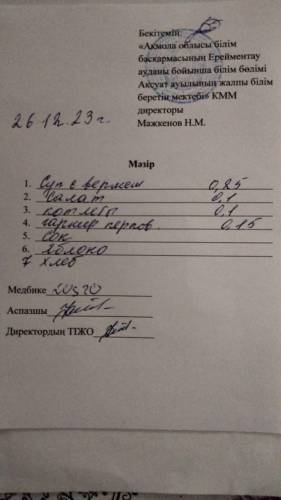 Бекітемін
«Ақмола облысы білім
басқармасының Ерейментау
ауданы бойынша білім бөлімі
Ақсуат ауылының жалпы білім
беретін мектебі» КММ
директоры
Мажкенов Н.М.
26.12.23г.
Мәзір
1. Суп с вермеш 0,25
2. Салат 0,1
3. котлеты 0,1
4. гарнир перлов. 0,15
5. Сок
6. Яблоко
7 Хлеб
Медбике
Аспазшы
Директордың ТІЖО